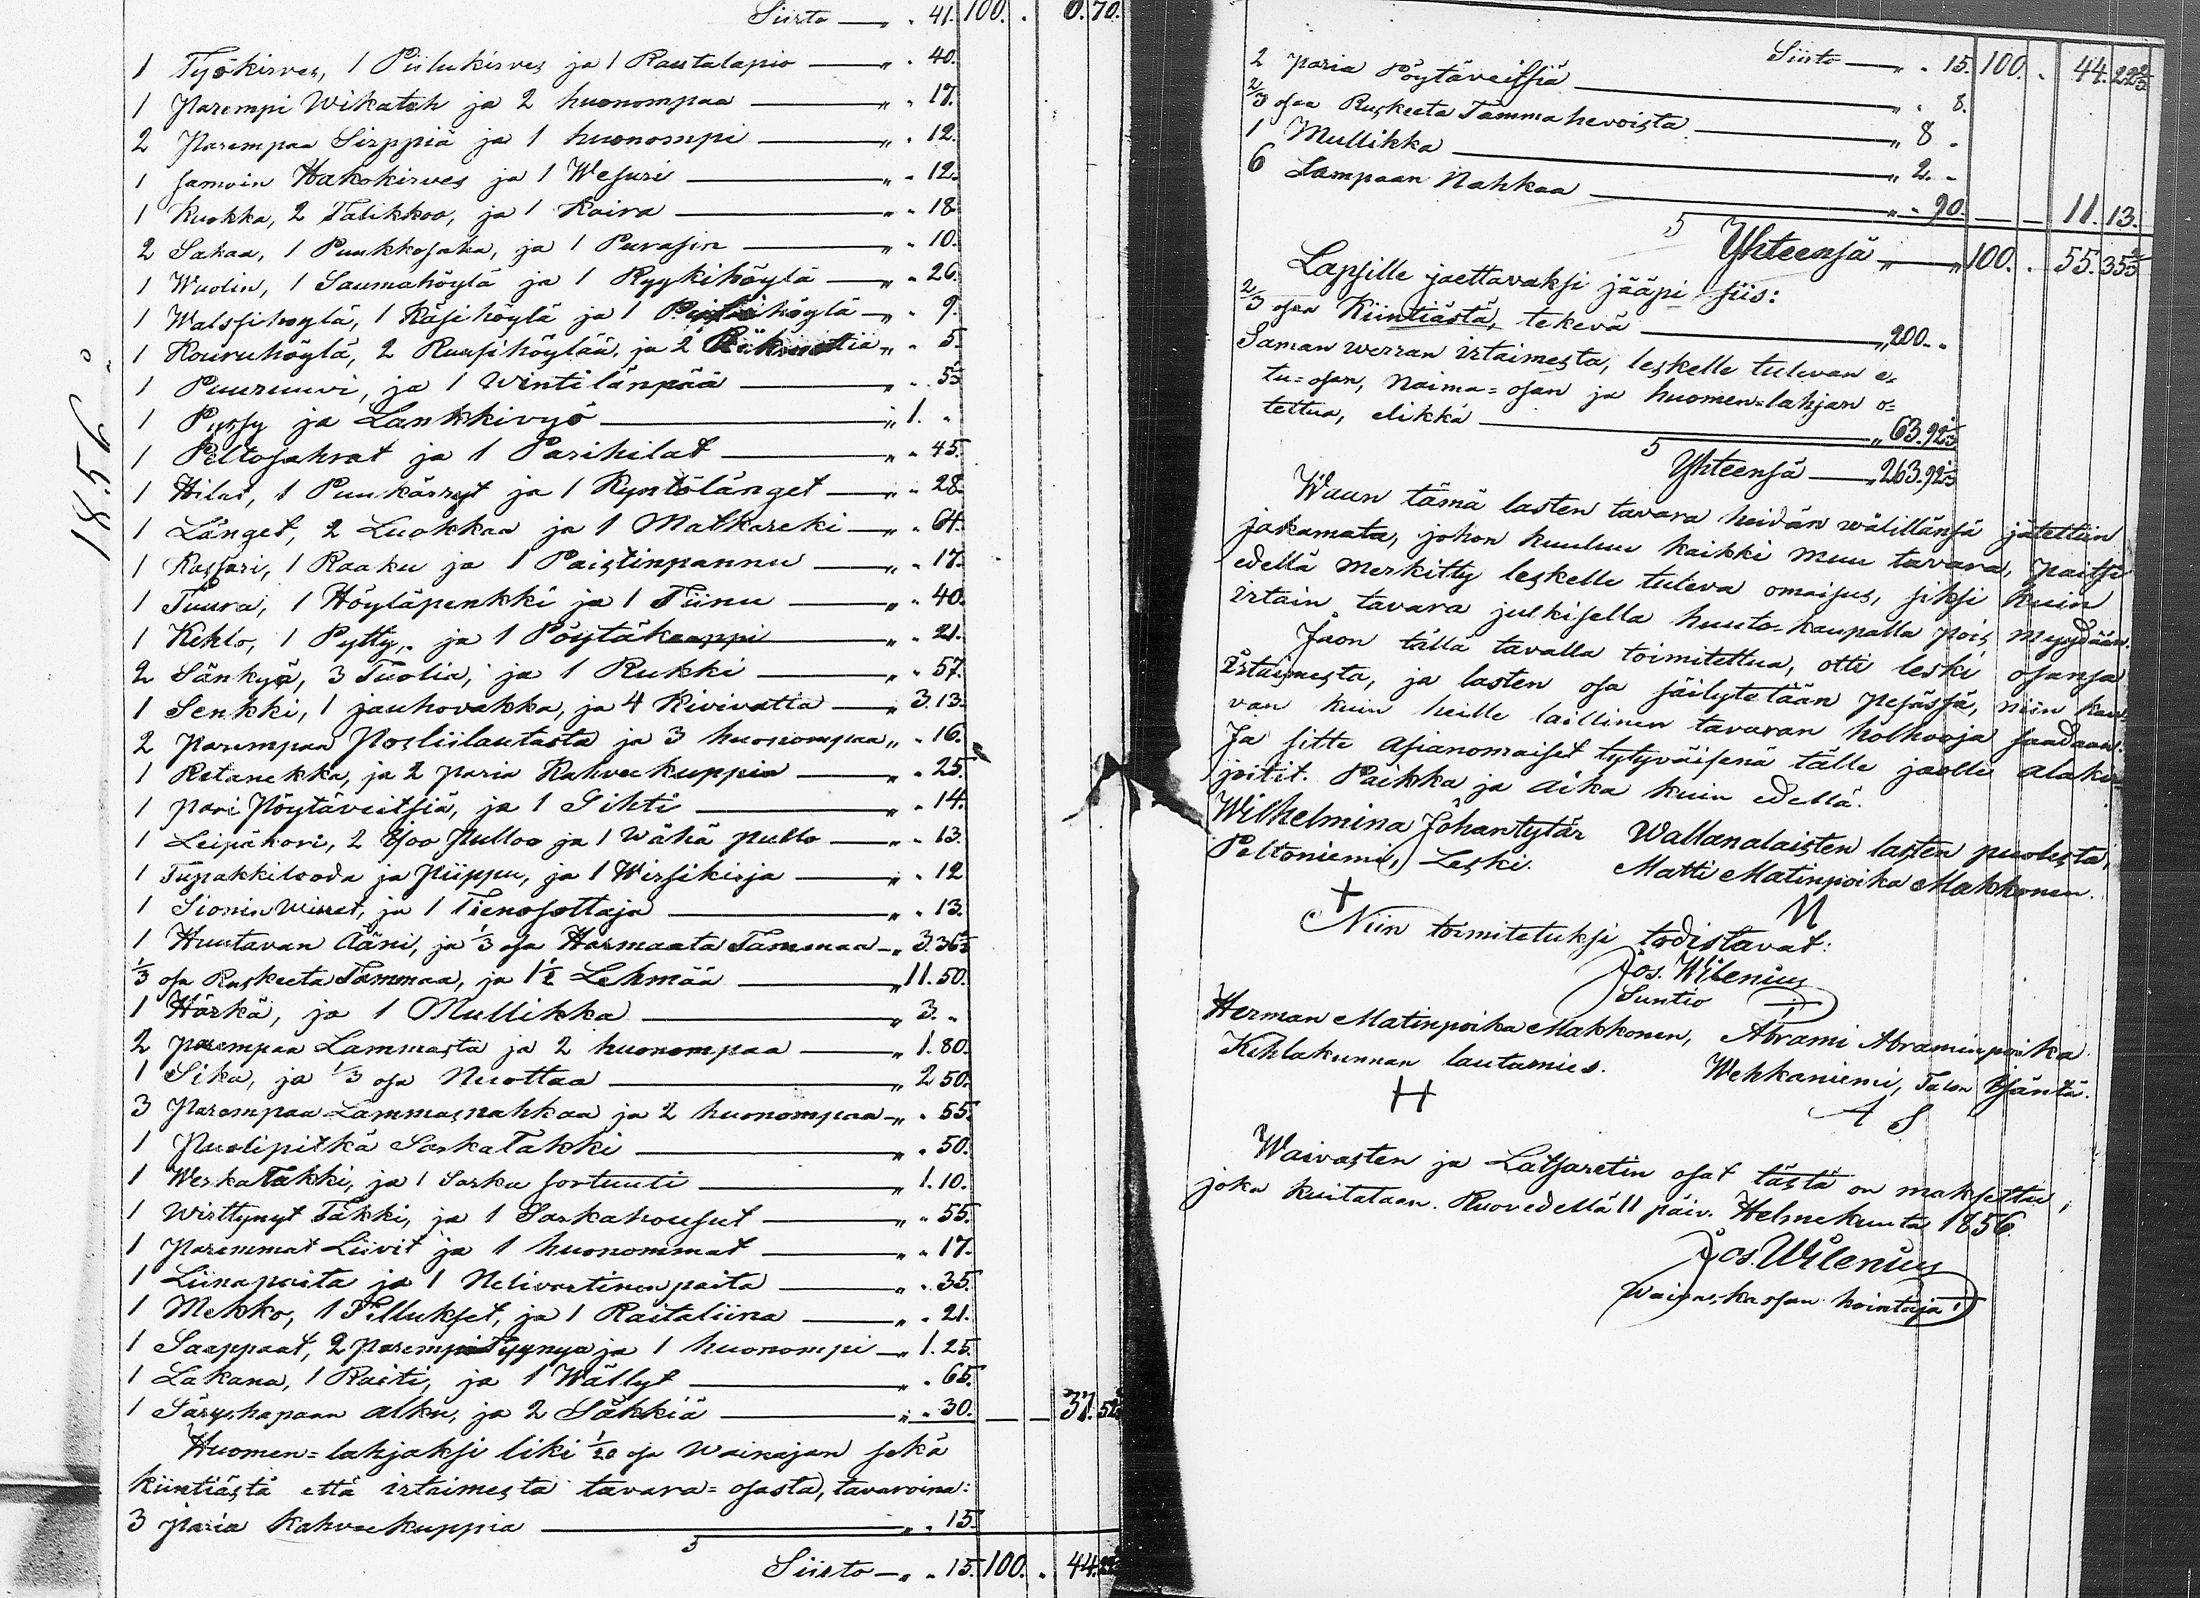 1856.
Siirto — „ „ 41. 100. „ 6. 70.
1 Työkirves, 1 Piilukirves ja 1 Rautalapio — „ „ 40.
1 Parempi Wikateh ja 2 huonompaa — „ „ 17.
2 Parempaa Sirppiä ja 1 huonompi — „ „ 12.
1 samoin Hakokirves ja 1 Wesuri — „ „ 12.
1 Kuokka, 2 Talikkoa, ja 1 Kaira — „ „ 18.
2 Sahaa, 1 Puukkosaha, ja 1 Purasin — „ „ 10.
1 Wuolin, 1 Saumahöylä ja 1 Ryykihöylä — „ „ 26.
1 Walssihöylä, 1 Käsihöylä ja 1 höylä — „ „ 9.
1 Kouruhöylä, 2 Ruusihöylää, ja 2 — „ „ 5.
1 Puuruuvi, ja 1 Wintilänpää — „ „ 5
1 Pyssy ja Lankkivyö — „ 1. „
1 Peltosahrat ja 1 Parihilat — „ „ 45.
1 Hilas, 1 Puukärryt ja 1 Kyntölänget — „ „ 28.
1 Länget, 2 Luokkaa ja 1 Matkareki — „ „ 64.
1 Kassari, 1 Raaku ja 1 Paistinpannu — „ „ 17.
1 Tuura, 1 Höyläpenkki ja 1 Tiinu — „ „ 40.
1 Kehlo, 1 Pytty, ja 1 Pöytäkaappi — „ „ 21.
2 Sänkyä, 3 Tuolia, ja 1 Rukki — „ „ 57.
1 Senkki, 1 jauhovakka, ja 4 Kivivatia — „ 3. 13.
2 parempaa Posliilautasta ja 3 huonompaa „ „ 16.
1 Retanekka, ja 2 paria Kahveekuppia — „ „ 25.
1 pari Pöytäveitsiä, ja 1 Sihti — „ „ 14.
1 Leipäkori, 2 Isoo Pulloo ja 1 Wähä pullo — „ „ 13.
1 Tupakkilooda ja Piippu, ja 1 Wirsikirja — „ „ 12
1 Sionin Wirret, ja 1 Tienosottaja — „ „ 13.
1 Huutavan Ääni, ja 1/3 osa Harmaata Tammaa — „ 3. 36 2/3
1/3 osa Ruskeeta Tammaa, ja 1 1/2 Lehmää — „ 11. 50.
1 Härkä, ja 1 Mullikka — „ 3. „
2 parempaa Lammasta ja 2 huonompaa — „ 1. 80.
1 Sika, ja 1/3 osa Nuottaa — „ 2 50.
3 Parempaa Lammasnahkaa ja 2 huonompaa — „ „ 55.
1 Puolipitkä Sarkatakki — „ „ 50.
1 Werkatakki, ja 1 Sarka sortuuti — „ 1. 10.
1 Wirttynyt Takki, ja 1 Sarkahousut — „ „ 55.
1 Paremmat Liivit ja 1 huonommat — „ „ 17.
1 Liinapaita ja 1 Nelivartinen paita — „ „ 35.
1 Mekko, 1 Tellukset, ja 1 Raitaliina — „ „ 21.
1 Saappaat, 2 parempi Tyynyä ja 1 huonompi — „ 1. 25.
1 Lakana, 1 Raiti, ja 1 Wällyt — „ „ 65.
1 Säryshapaan alku, ja 2 Säkkiä — „ „ 30. 37. 52
Huomen=lahjaksi liki 1/20 osa Wainajan sekä
kiintiästä että irtaimesta tavara=osasta, tavaroina:
3 Paria Kahveekuppia — „ „ 15.
Siirto — „ „ 15. 100. „ 44. 22 2/3
Siirto — „ „ 15. 100. „ 44. 22 2/3
2 paria Pöytäveitsiä — „ „ 8.
2/3 osaa Ruskeeta Tammahevoista — „ 8 „
1 Mullikka — „ 2. „
6 Lampaan Nahkaa — „ „ 90. 11. 13.
Yhteensä — „ 100. „ 55. 35 2/3
Lapsille jaettavaksi jääpi siis:
2/3 osaa Kiintiästä, tekevä — „ 200. „
Saman werran irtaimesta, leskelle tulevan e=
tu=osan, Naima=osan ja huomen=lahjan o=
tettua, elikkä — „ 63. 92 1/3
Yhteensä — „ 263. 92 1/3
Waan tämä lasten tavara heidän wälillänsä jätettiin
jakamata, johon kuuluu kaikki muu tavara, paitsi
edellä merkitty leskelle tuleva omaisus, siksi kuin
irtain tavara julkisella huuto-kaupalla pois myydään.
Jaon tällä tavalla toimitettua, otti leski osansa
irtaimesta, ja lasten osa säilytetään pesässä, niin kau
van kuin heille laillinen tavaran holhooja saadaan.
Ja sitte asianomaiset tytyväisenä tälle jaolle alakir=
joitit. Paikka ja aika kuin edellä.
Wilhelmina Johantytär Wallanalaisten lasten puolesta,
Peltoniemi, Leski. Matti Matinpoika Makkonen.
+ M
Niin toimitetuksi todistavat:
Jos. Wilenius
Suntio
Herman Matinpoika Makkonen, Abrami Abraminpoika
Kihlakunnan lautamies. Wehkaniemi, Talon Isäntä.
H A S
Waivasten ja Latsaretin osat tästä on maksettu,
joka kuitataan. Ruovedellä 11 päiv. Helmekuuta 1856.
Jos. Wilenius
Waivas-kassan hointaja